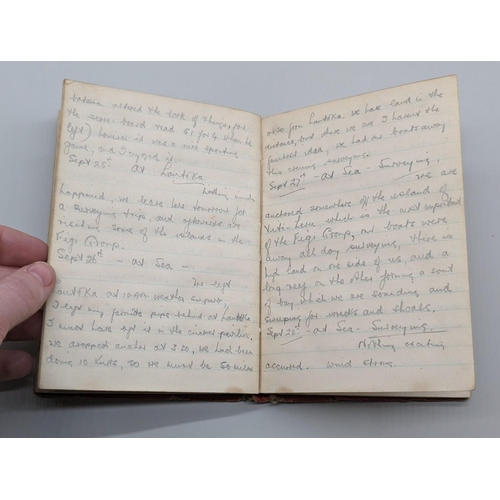 batsmen altered the look of things, for
the score board read 51 for 4 when he
left) however it was a nice sporting
game, and I enjoyed it.
Sept 25th at Lautoka
Nothing much
happened, we leave here tomorrow for
a surveying trip, and afterwards are
visiting some of the islands in the
Fiji Group.
Sept 26th - at Sea -
We left
Lautoka at 10 AM weather superb,
I left my favourite pipe behind at Lautoka
I must have left it in the cricket pavilion.
We dropped anchor at 3.20, we had been
doing 10 knots, so we must be 50 miles
or so from Lautoka. We have land in the
distance, but where we are I haven't the
faintest idea, we had no boats away
this evening surveying.
Sept 27th - at Sea - Surveying.
We are
anchored somewhere off the island of
Viti-Levu which is the most important
of the Fiji Group, our boats were
away all day surveying, there is
land on one side of us, and a
long reef on the other forming a sort
of bay, which we are sounding and
sweeping for wrecks and shoals.
Sept 28th - at Sea - Surveying
Nothing exciting
occurred. wind strong.